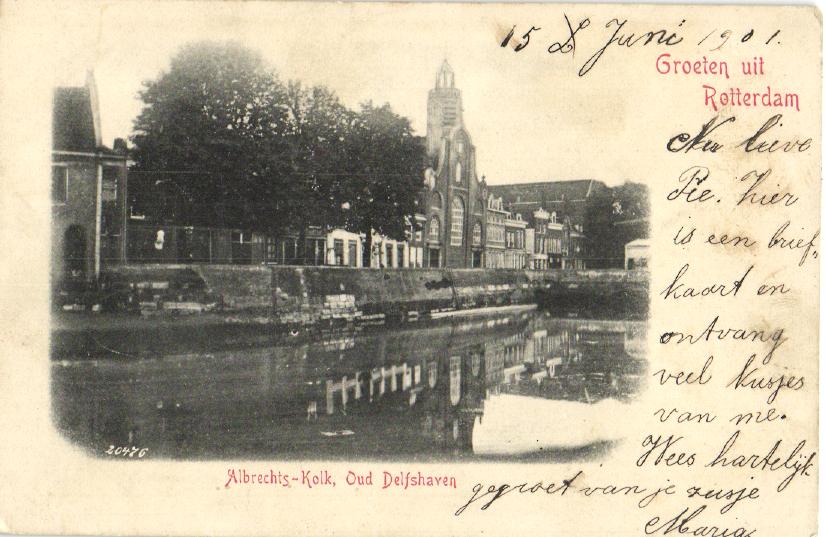 15 Juni 1901.
Groeten uit
Rotterdam
Nu lieve
Pie. hier
is een brief„
kaart en
ontvang
veel kusjes
van me.
Wees hartelijk
gegroet van je zusje
Maria
20476
Albrechts-Kolk, Oud Delfshaven